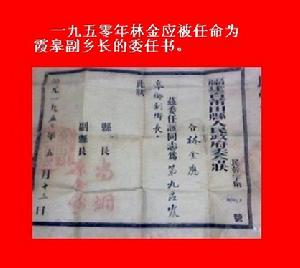 一九五零年林金应被任命为
霞皋副乡长的委任书。
福建省莆田縣人民政府委任狀
民幹字第
號
令林金應
茲委任該同志為第九區霞
皋鄉副鄉長。
此狀
縣長
副縣長
五月十三日